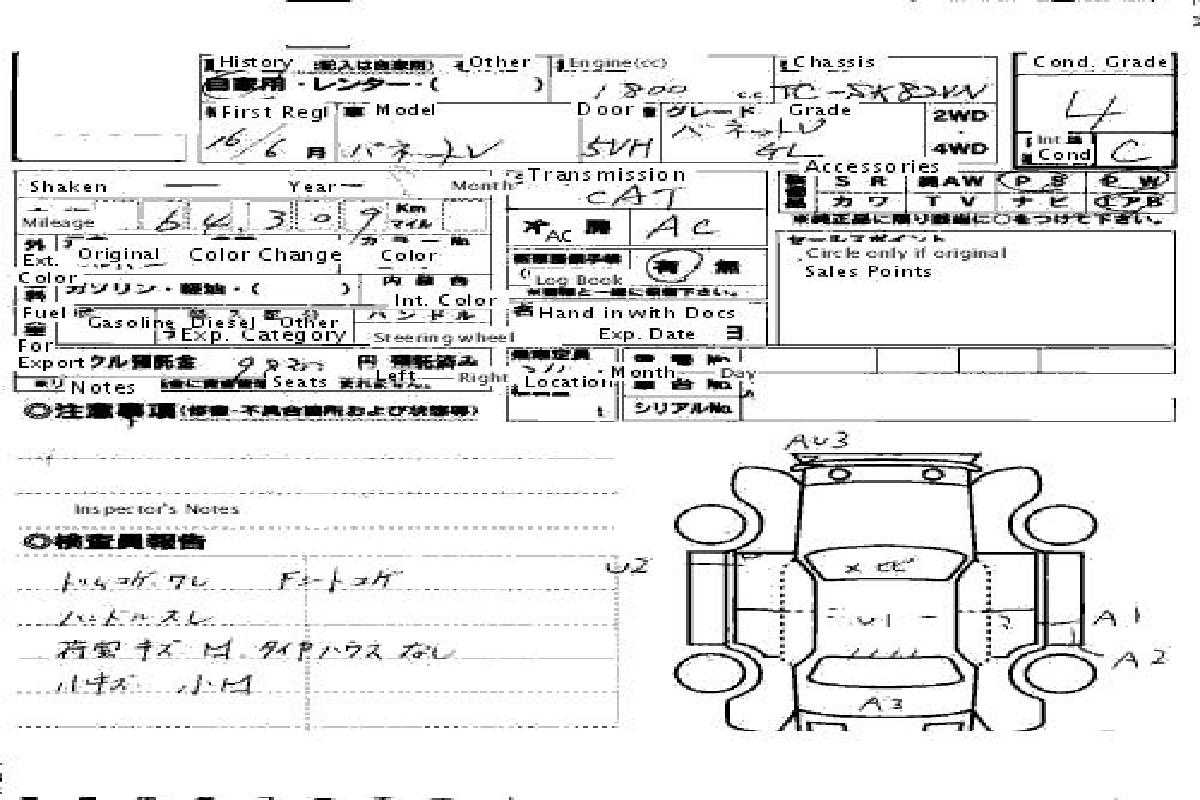 History (記入は自家用) Other Engine(cc) Chassis Cond. Grade
自家用・レンター・( ) 1800 c.c. TC-SK82VN 4
First Regl 車 Model Door グレード Grade 2WD
16/6 月 バネットV 5VH バネットV GL 4WD Int Cond C
Shaken Year Month Transmission Accessories
CAT SR 純AW PS PW
Mileage 64,309 Km マイル カワ TV ナビ エアB
AC AC ※純正品に限り該当に○をつけて下さい。
外 カラーNo セールスポイント
Ext. Original Color Change Color 有 無 Circle only if original
Color 内装色 Log Book Sales Points
ガソリン・軽油・( ) Int. Color
Fuel ハンドル Hand in with Docs
Gasoline Diesel Other Exp. Date 日
For Exp. Category Steering wheel
Export クル預託金 円 預託済み
Month Day
Notes Seats Left Right Location 車台No.
◎注意事項(修復・不具合箇所および状態等) シリアルNo.
AU3
Inspector's Notes
◎検査員報告
トリムコゲ.ワレ Fシートコゲ U2
ハンドルスレ U1 A1
荷室キズ 凹. タイヤハウスなし A2
小キズ 小凹 A3